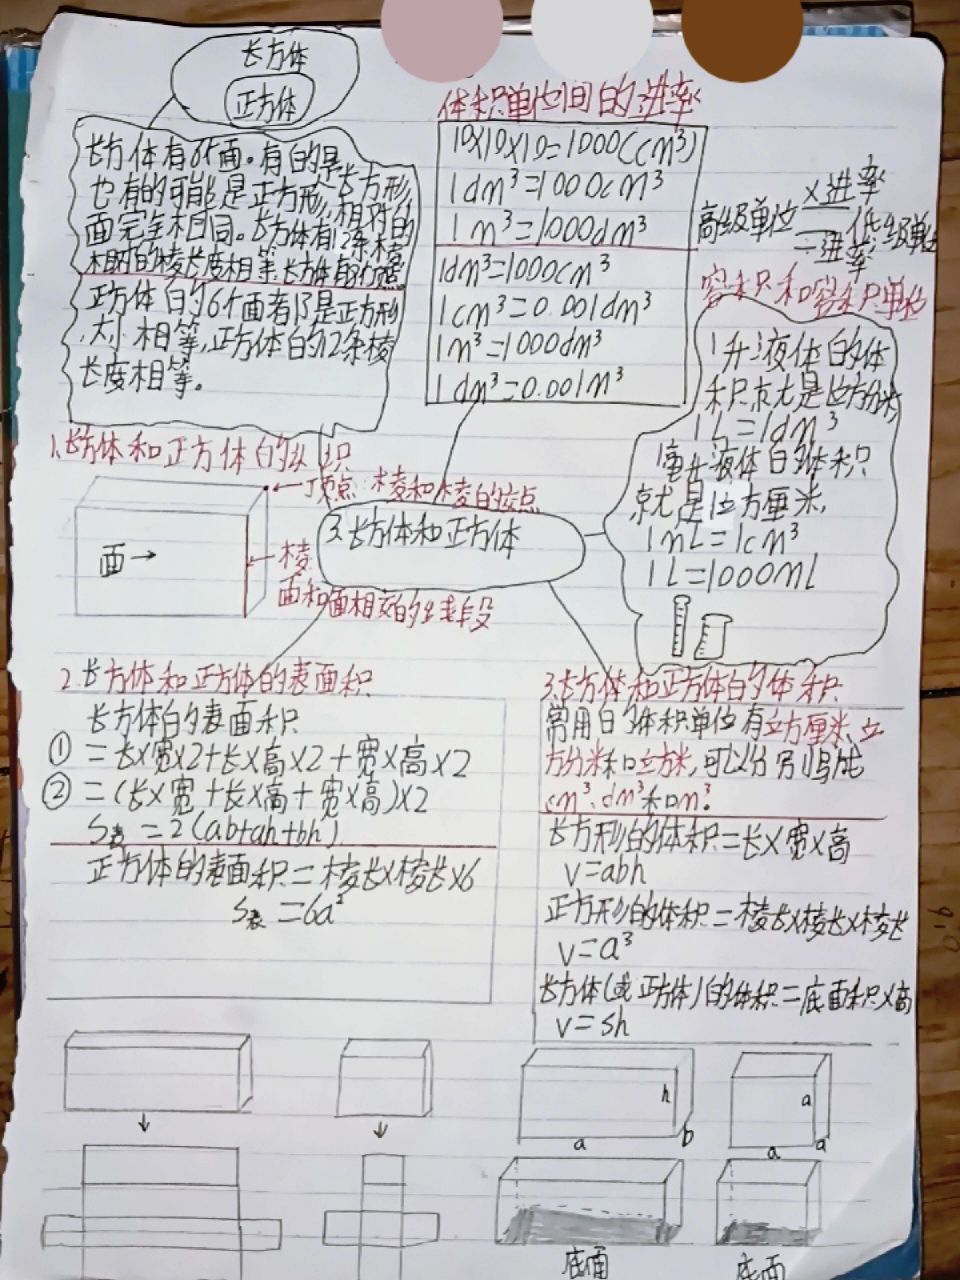 长方体
正方体
长方体有6个面。有的是
也有的可能是正方形,长方形,
面完全相同。长方体有12条棱
相对的棱长度相等
正方体的6个面都是正方形
,大小相等,正方体的12条棱
长度相等。
体积单位间的进率
10×10×10=1000(cm³)
1dm³=1000cm³
1m³=1000dm³
1dm³=1000cm³
1cm³=0.001dm³
1m³=1000dm³
1dm³=0.001m³
×进率
高级单位 低级单位
÷进率
容积和容积单位
1升液体的体
积就是1立方分米
1L=1dm³
1毫升液体的体积
就是1立方厘米,
1mL=1cm³
1L=1000mL
1.长方体和正方体的认识
顶点 棱和棱的交点
面→
棱
面和面相交的线段
3.长方体和正方体
2.长方体和正方体的表面积
长方体的表面积
①=长×宽×2+长×高×2+宽×高×2
②=(长×宽+长×高+宽×高)×2
S表=2(ab+ah+bh)
正方体的表面积=棱长×棱长×6
S表=6a²
3.长方体和正方体的体积
常用的体积单位有立方厘米、立
方分米和立方米,可以分别写成
cm³、dm³和m³.
长方形的体积=长×宽×高
v=abh
正方形的体积=棱长×棱长×棱长
v=a³
长方体(或正方体)的体积=底面积×高
v=sh
h
a
b
a
a
a
底面
底面